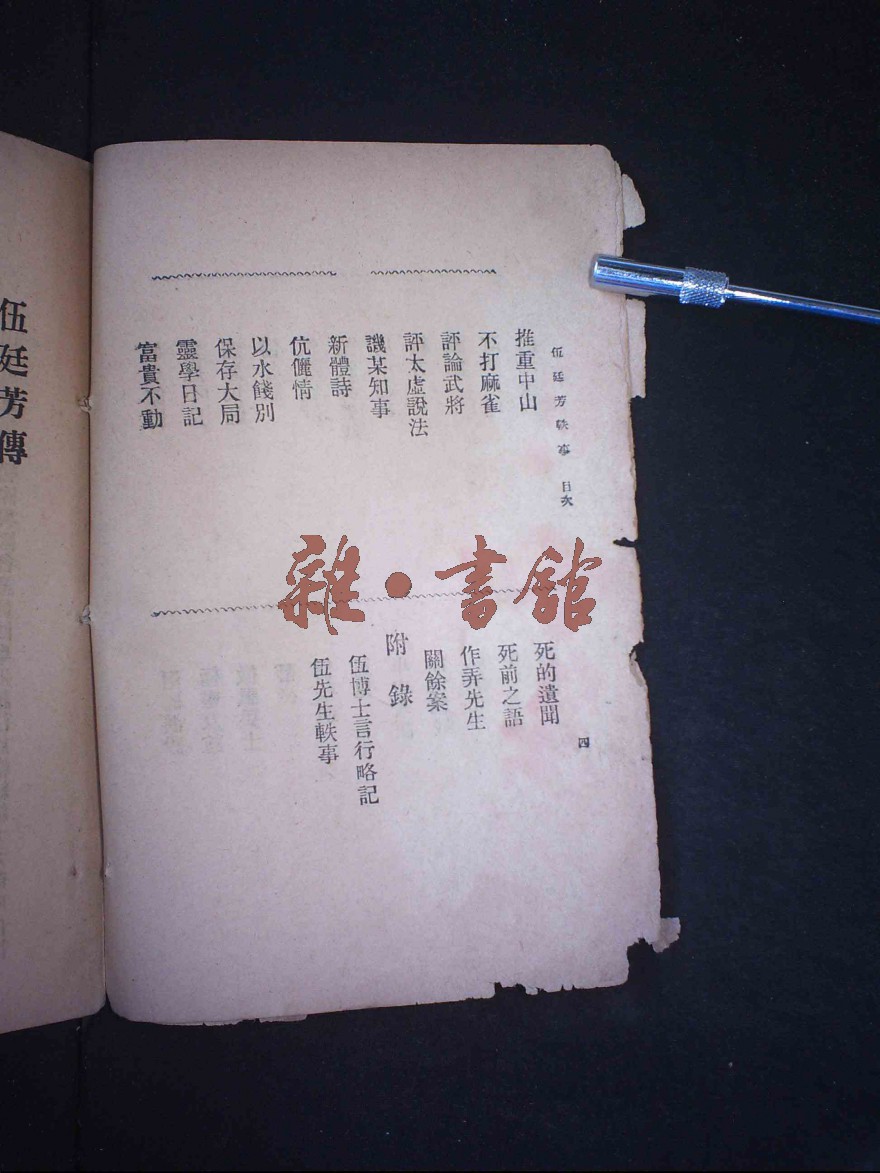 伍廷芳軼事 目次
四
推重中山
不打麻雀
評論武將
評太虛說法
譏某知事
新體詩
伉儷情
以水餞別
保存大局
靈學日記
富貴不動
死的遺聞
死前之語
作弄先生
關餘案
附錄
伍博士言行略記
伍先生軼事
伍廷芳傳
雜·書館